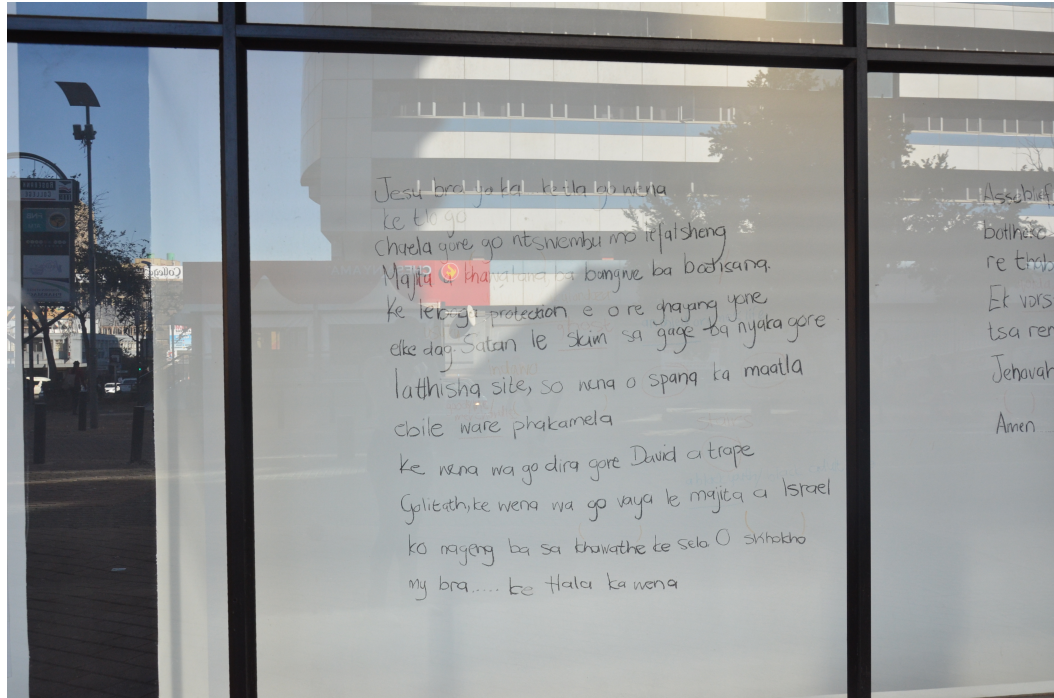 Jesu bra ya ka ketla go wena
ke tlo go
chaela gore go ntshwembu mo lefatsheng
Majita a khawatana ba bangwe ba batisana.
Ke leboga protection e o re ghayang yone
elke dag. Satan le skim sa gage ba nyaka gore
latlhisha site, so wena o spana ka maatla
ebile ware phakamela
ke wena wa go dira gore David a trape
Goliath, ke wena wa go vaya le majita a Israel
ko nageng ba sa khawathe ke selo O skhokho
my bra..... ke tlala ka wena
Assebli
botlhe
re thab
Ek vors
tsa ren
Jehovah
Amen
College